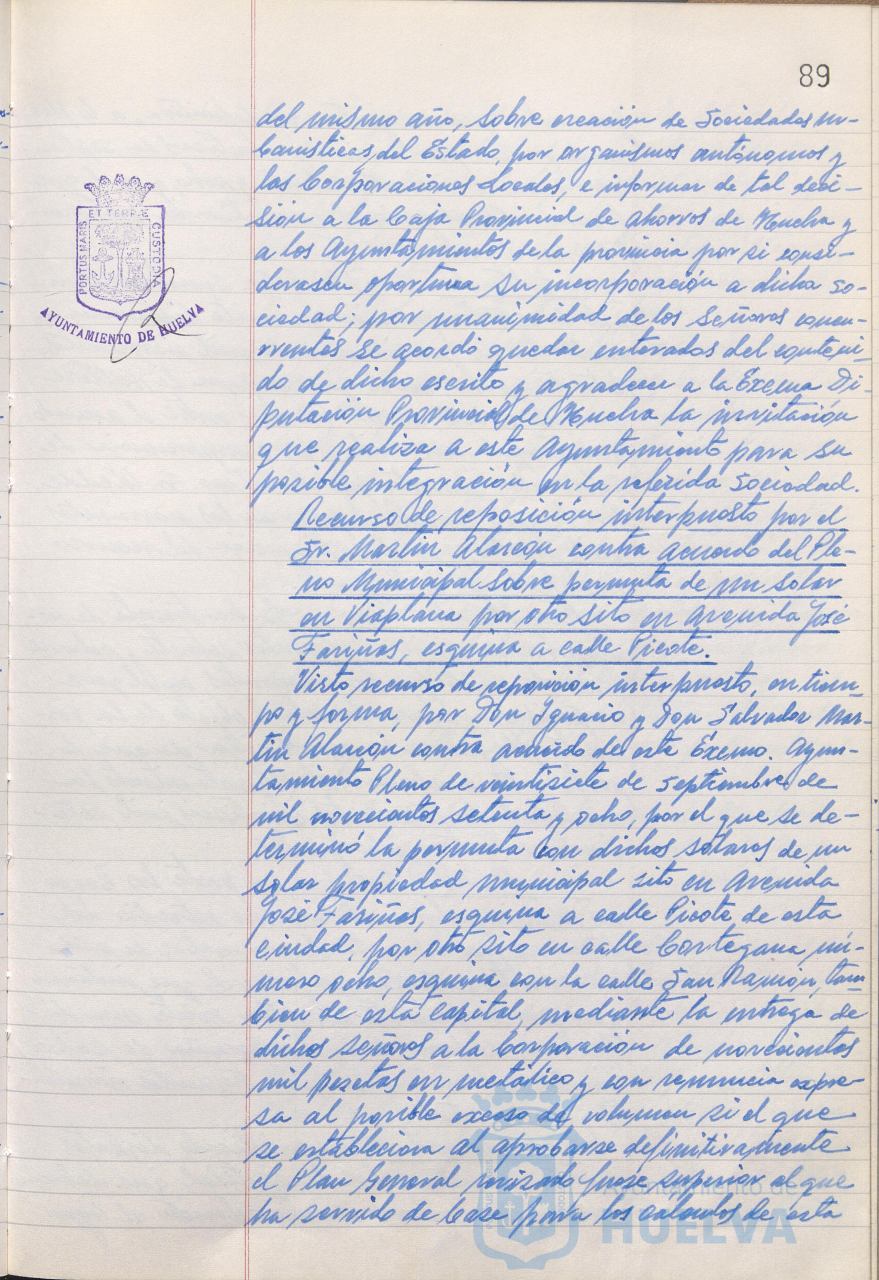 89
del mismo año, sobre creación de Sociedades ur-
banísticas del Estado, por organismos autónomos y
las Corporaciones Locales, e informar de tal deci-
sión a la Caja Provincial de Ahorros de Huelva y
a los Ayuntamientos de la provincia por si consi-
derasen oportuna su incorporación a dicha so-
ciedad; por unanimidad de los Señores concu-
rrentes se acordó quedar enterados del conteni-
do de dicho escrito y agradecer a la Excma Di-
putación Provincial de Huelva la invitación
que realiza a este Ayuntamiento para su
posible integración en la referida Sociedad.
Recurso de reposición interpuesto por el
Sr. Martín Alarcón contra acuerdo del Ple-
no Municipal sobre permuta de un solar
en Viaplana por otro sito en Avenida José
Fariñas, esquina a calle Picote.
Visto recurso de reposición interpuesto, en tiem-
po y forma, por Don Ignacio y Don Salvador Mar-
tín Alarcón contra acuerdo de este Excmo. Ayun-
tamiento Pleno de veintisiete de Septiembre de
mil novecientos setenta y ocho, por el que se de-
terminó la permuta con dichos señores de un
solar propiedad municipal sito en Avenida
José Fariñas, esquina a calle Picote de esta
ciudad, por otro sito en calle Cortegana nú-
mero ocho, esquina con la calle San Ramón, tam
bien de esta capital, mediante la entrega de
dichos señores a la Corporación de novecientas
mil pesetas en metálico y con renuncia expre-
sa al posible exceso de volumen si el que
se estableciera al aprobarse definitivamente
el Plan General revisado fuese superior al que
ha servido de base para los calculos de esta
PORTUS MARIS
ET TERRÆ
CUSTODIA
AYUNTAMIENTO DE HUELVA
Ayuntamiento de
HUELVA